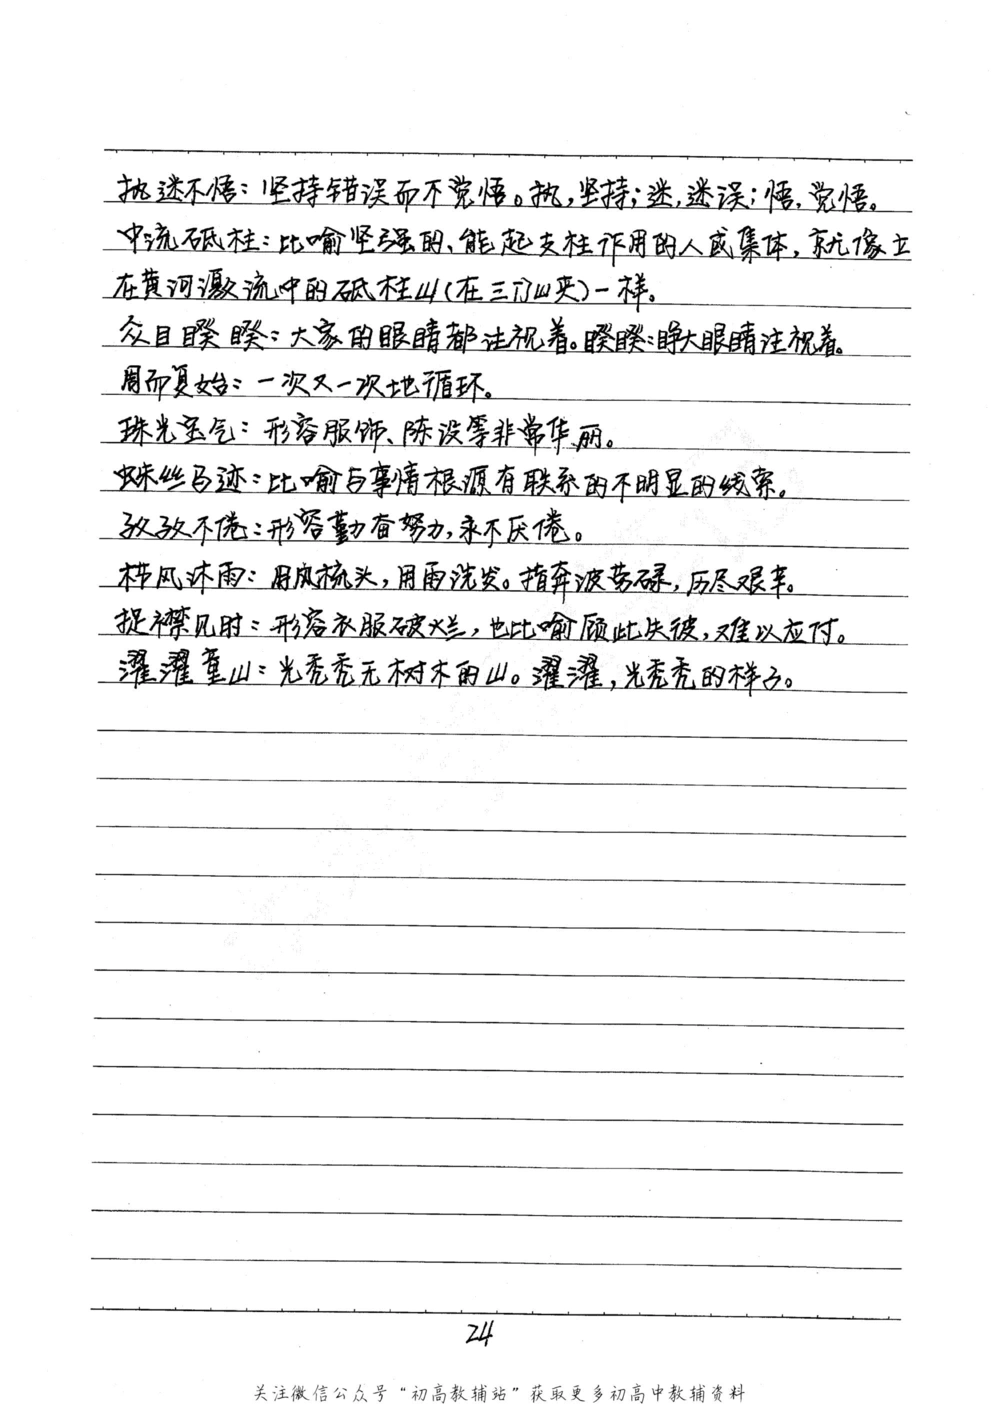 执迷不悟：坚持错误而不觉悟。执，坚持；迷，迷误；悟，觉悟。
中流砥柱：比喻坚强的、能起支柱作用的人或集体，就像立
在黄河激流中的砥柱山(在三门山夹)一样。
众目睽睽：大家的眼睛都注视着。睽睽：睁大眼睛注视着。
周而复始：一次又一次地循环。
珠光宝气：形容服饰、陈设等非常华丽。
蛛丝马迹：比喻与事情根源有联系的不明显的线索。
孜孜不倦：形容勤奋努力，永不厌倦。
栉风沐雨：用风梳头，用雨洗发。指奔波劳碌，历尽艰辛。
捉襟见肘：形容衣服破烂，也比喻顾此失彼，难以应付。
濯濯童山：光秃秃无树木的山。濯濯，光秃秃的样子。
24
关注微信公众号“初高教辅站”获取更多初高中教辅资料